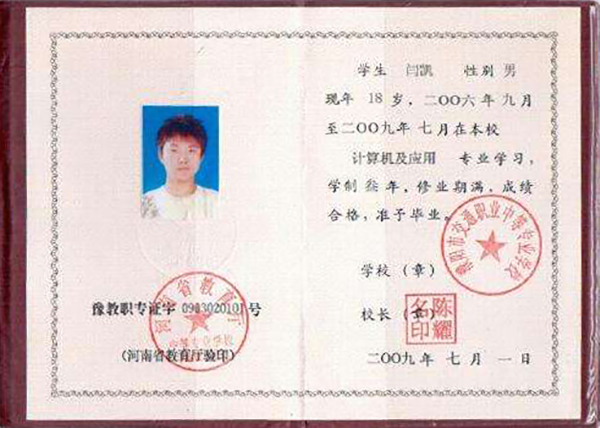 学生 闫凯 性别 男
现年 18 岁，二〇〇六年九月
至二〇〇九年七月在本校
计算机及应用 专业学习，
学制 叁年，修业期满，成绩
合格，准予毕业。
濮阳市交通职业中等专业学校
学校（章）
校长（章）
陈耀名印
二〇〇九年七月一日
河南省教育厅
中等专业学校
豫教职专证字 0903020101 号
（河南省教育厅验印）